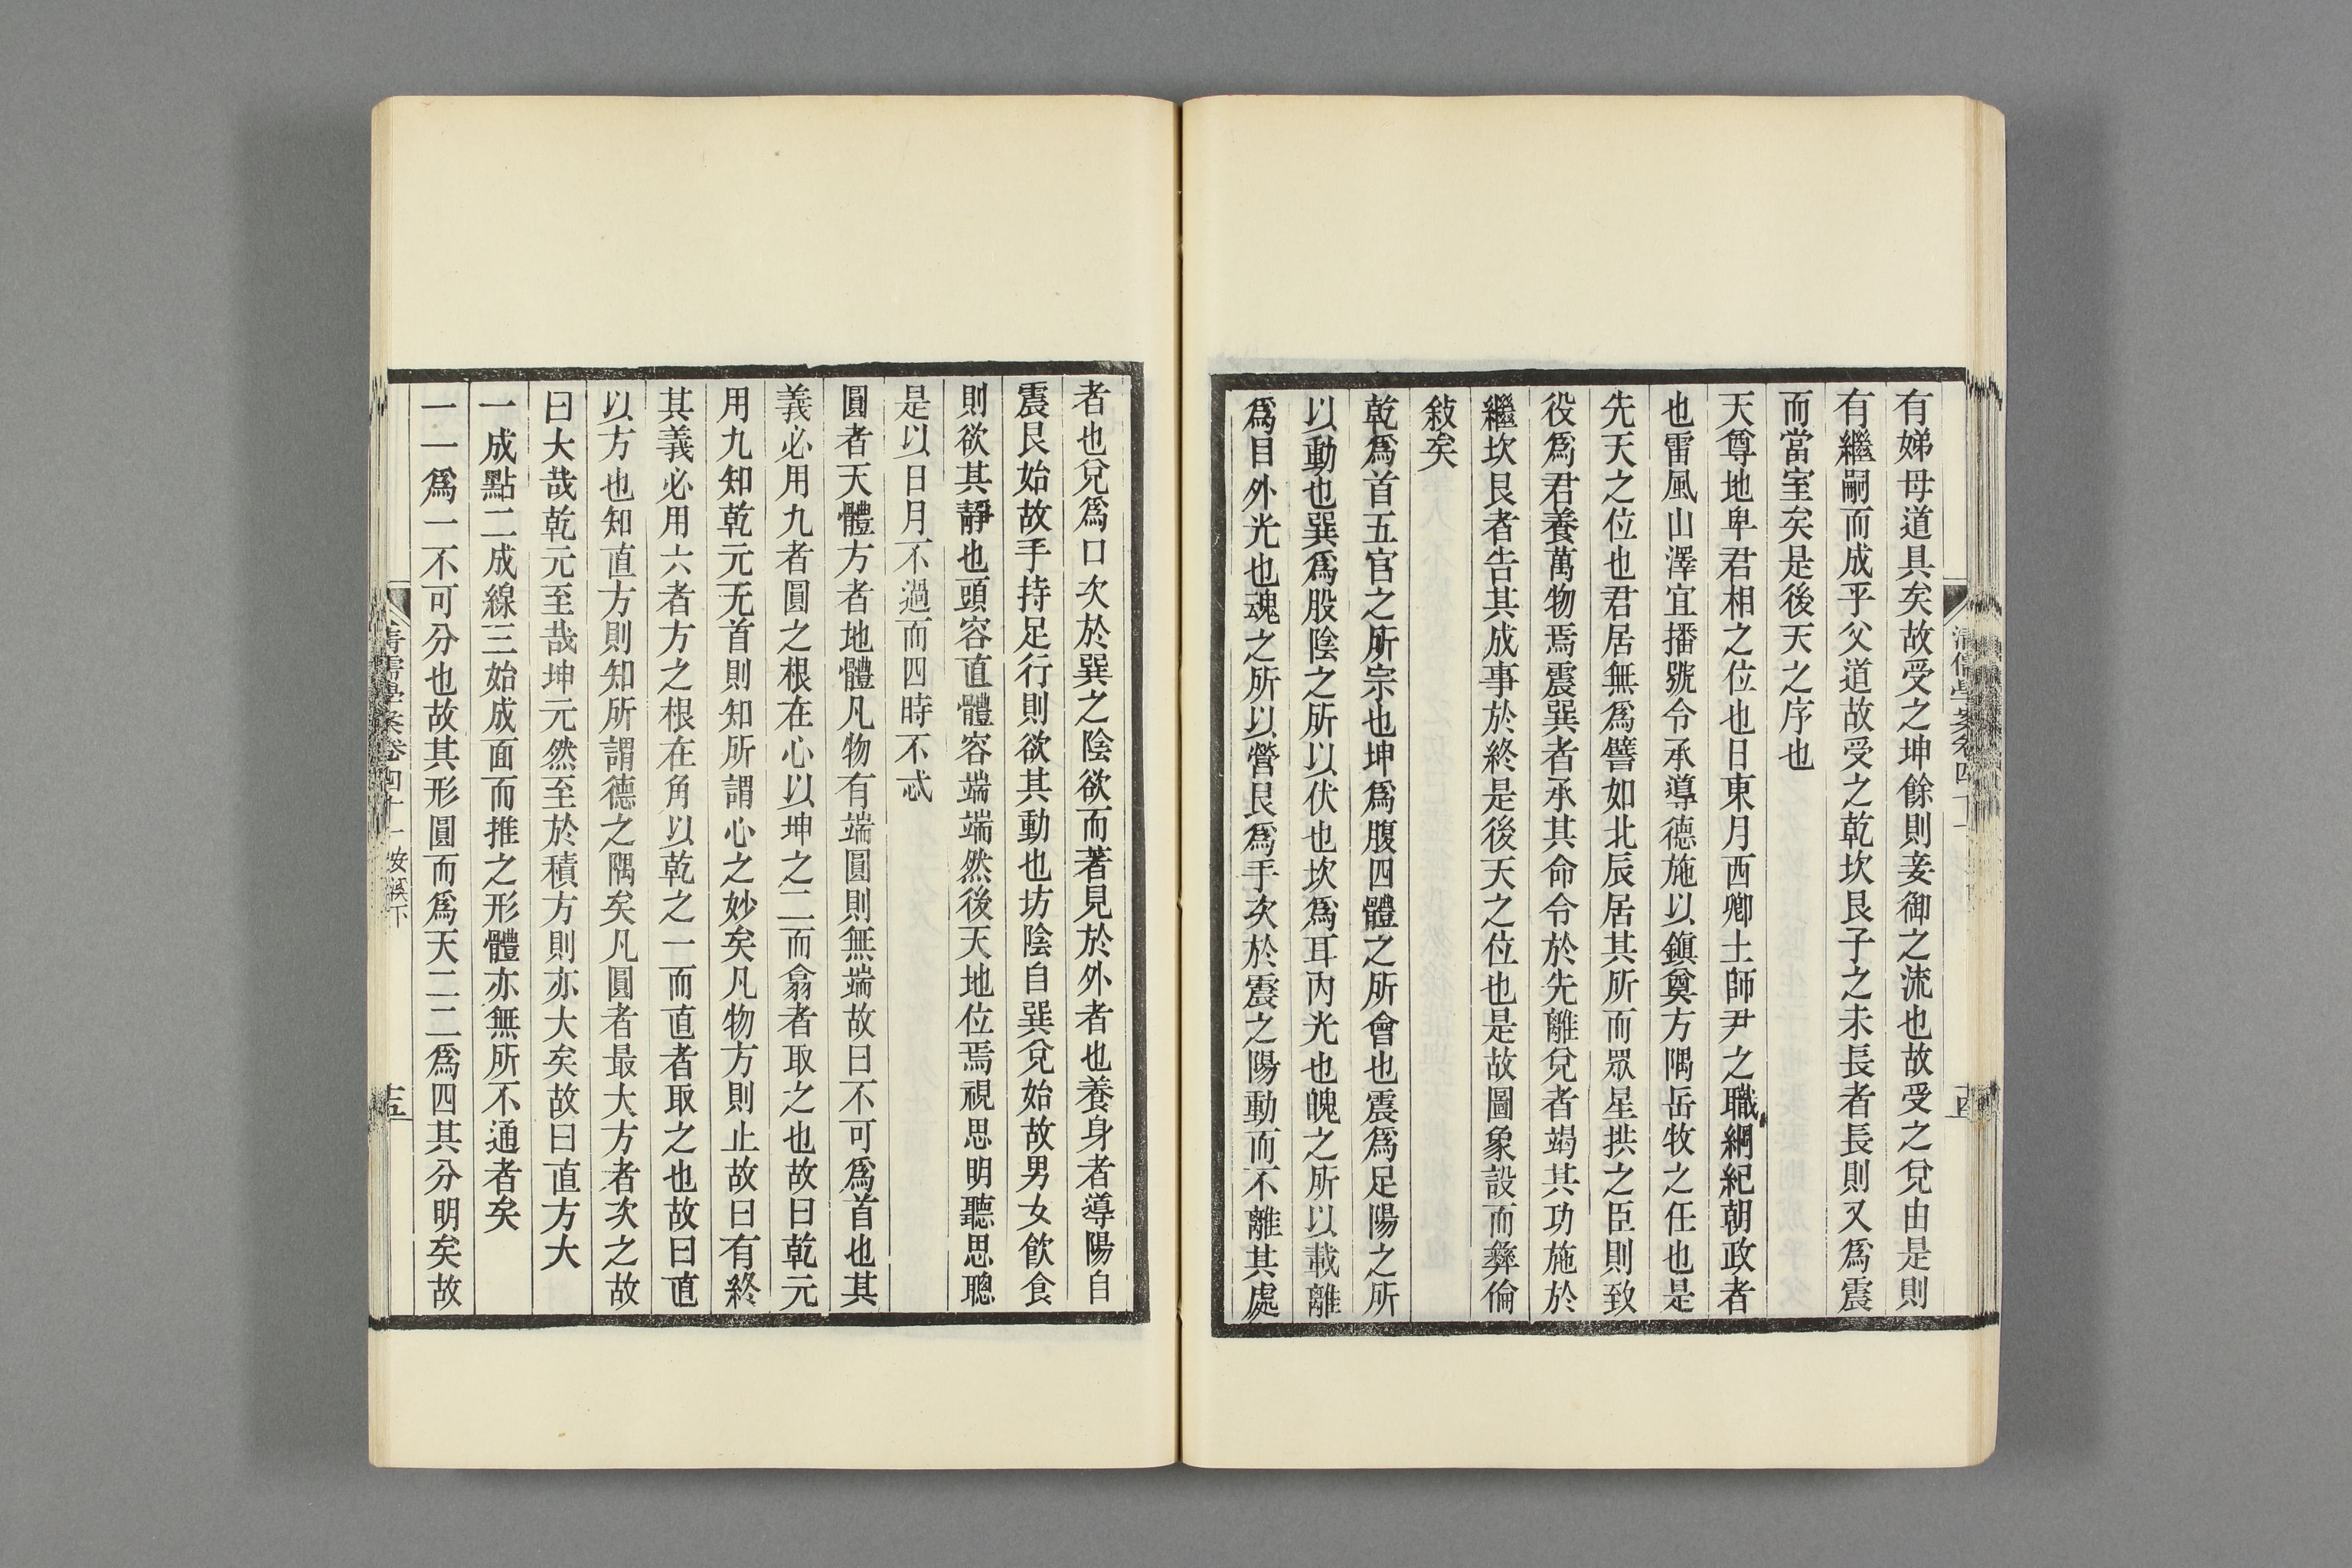 有娣母道具矣故受之坤餘則妾御之流也故受之兌由是則
有繼嗣而成乎父道故受之乾坎艮子之未長者長則又爲震
而當室矣是後天之序也
天尊地卑君相之位也日東月西卿士師尹之職綱紀朝政者
也雷風山澤宜播號令承導德施以鎮奠方隅岳牧之任也是
先天之位也君居無爲譬如北辰居其所而眾星拱之臣則致
役爲君養萬物焉震巽者承其命令於先離兌者竭其功施於
繼坎艮者告其成事於終是後天之位也是故圖象設而彝倫
敍矣
乾爲首五官之所宗也坤爲腹四體之所會也震爲足陽之所
以動也巽爲股陰之所以伏也坎爲耳內光也魄之所以載離
爲目外光也魂之所以營艮爲手次於震之陽動而不離其處
清儒學案卷四十一
十四
者也兌爲口次於巽之陰欲而著見於外者也養身者導陽自
震艮始故手持足行則欲其動也坊陰自巽兌始故男女飲食
則欲其靜也頭容直體容端端然後天地位焉視思明聽思聰
是以日月不過而四時不忒
圓者天體方者地體凡物有端圓則無端故曰不可爲首也其
義必用九者圓之根在心以坤之二而翕者取之也故曰乾元
用九知乾元无首則知所謂心之妙矣凡物方則止故曰有終
其義必用六者方之根在角以乾之一而直者取之也故曰直
以方也知直方則知所謂德之隅矣凡圓者最大方者次之故
曰大哉乾元至哉坤元然至於積方則亦大矣故曰直方大
一成點二成線三始成面而推之形體亦無所不通者矣
一一爲一不可分也故其形圓而爲天二二爲四其分明矣故
清儒學案卷四十一 安溪下
十五